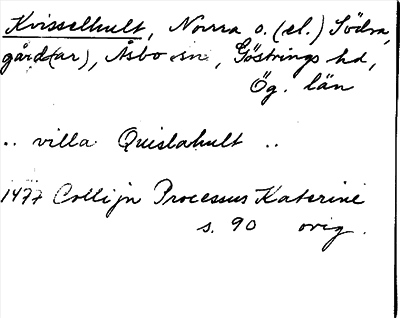 Kvisselhult, Norra o. (el.) Södra,
gård(ar), Åsbo sn, Göstrings hd,
Ög. län
.. villa Quislahult ..
1477 Collijn Processus Katerine
s. 90 orig.